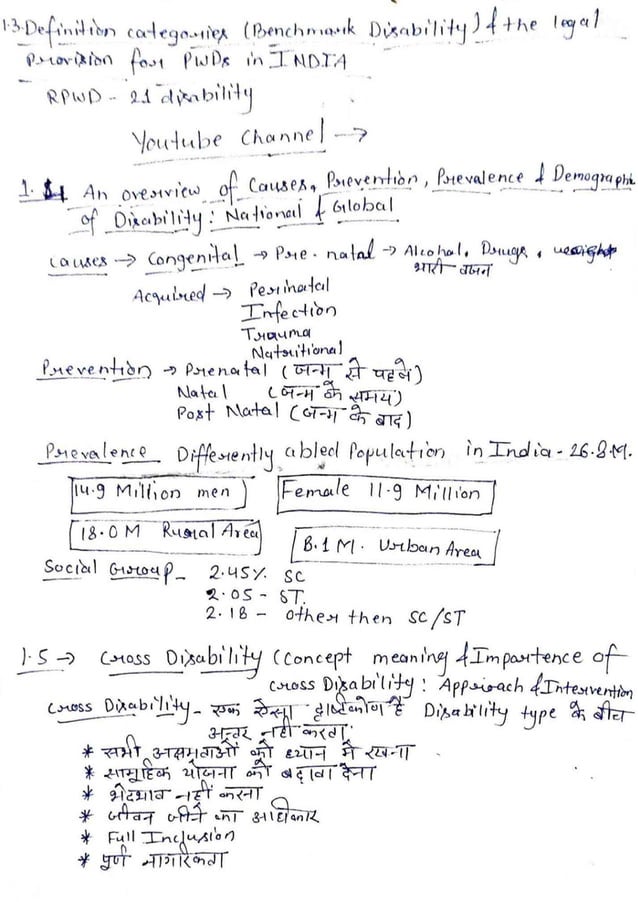 1.3. Definition categories (Benchmark Disability) & the legal
Provision for PWDs in INDIA
RPWD - 21 disability
Youtube Channel →
1. 4 An overview of Causes, Prevention, Prevalence & Demographi
of Disability: National & Global
Causes → Congenital → Pre-natal → Alcohal, Drugs,
भारी वजन
Acquired → Perinatal
Infection
Trauma
Natritional
Prevention → Prenatal (जन्म से पहले)
Natal (जन्म के समय)
Post Natal (जन्म के बाद)
Prevalence Differently abled Population in India - 26.8 M.
14.9 Million men Female 11.9 Million
18.0 M Rural Area 8.1 M. Urban Area
Social Group - 2.45% SC
2.05 - ST.
2.18 - other then SC/ST
1.5 → Cross Disability (Concept meaning & Impartence of
Cross Disability: Approach & Intervention
Cross Disability - एक ऐसा दृष्टिकोण है Disability type के बीच
अन्तर नहीं करता
* सभी अक्षमताओं को ध्यान में रखना
* सामूहिक योजना को बढ़ावा देना
* भेदभाव नहीं करना
* जीवन जीने का अधिकार
* Full Inclusion
* पूर्ण नागरिकता